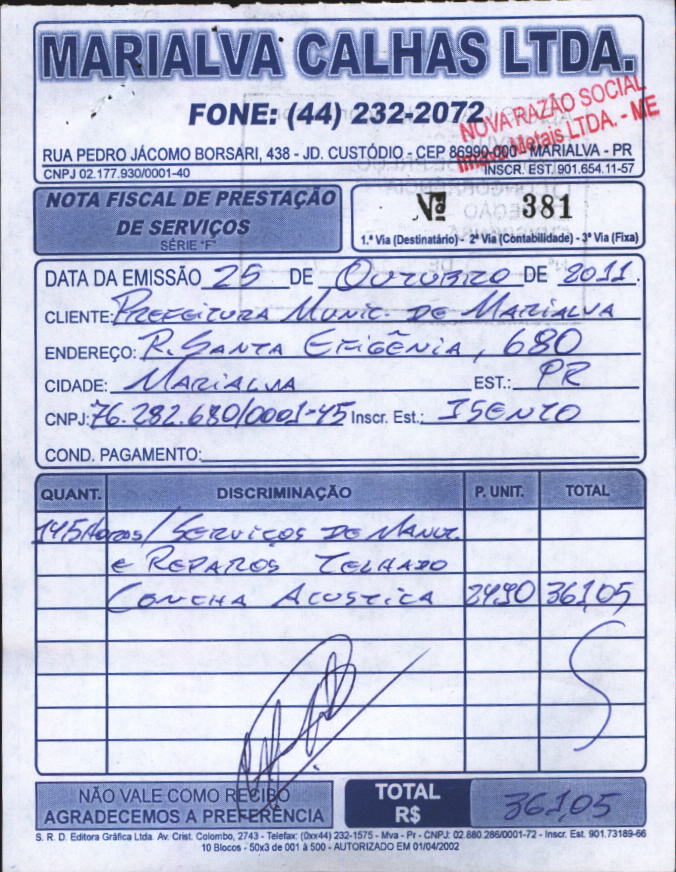 MARIALVA CALHAS LTDA.
FONE: (44) 232-2072
NOVA RAZÃO SOCIAL
Metais LTDA. - ME
RUA PEDRO JÁCOMO BORSARI, 438 - JD. CUSTÓDIO - CEP 86990-000 - MARIALVA - PR
CNPJ 02.177.930/0001-40 INSCR. EST. 901.654.11-57
NOTA FISCAL DE PRESTAÇÃO
DE SERVIÇOS
SÉRIE "F"
Nº 381
1.ª Via (Destinatário) - 2ª Via (Contabilidade) - 3ª Via (Fixa)
DATA DA EMISSÃO 25 DE OUTUBRO DE 2011.
CLIENTE: PREFEITURA MUNIC. DE MARIALVA
ENDEREÇO: R. SANTA EFIGÊNIA, 680
CIDADE: MARIALVA EST.: PR
CNPJ: 76.282.680/0001-45 Inscr. Est.: ISENTO
COND. PAGAMENTO:
QUANT. DISCRIMINAÇÃO P. UNIT. TOTAL
Horas/ SERVIÇOS DE MANUT
E REPAROS TELHADO
CONCHA ACUSTICA 24,90 361,05
NÃO VALE COMO RECIBO
AGRADECEMOS A PREFERÊNCIA
TOTAL
R$ 361,05
S. R. D. Editora Gráfica Ltda. Av. Crist. Colombo, 2743 - Telefax: (0xx44) 232-1575 - Mva - Pr - CNPJ: 02.880.286/0001-72 - Inscr. Est. 901.73189-66
10 Blocos - 50x3 de 001 à 500 - AUTORIZADO EM 01/04/2002